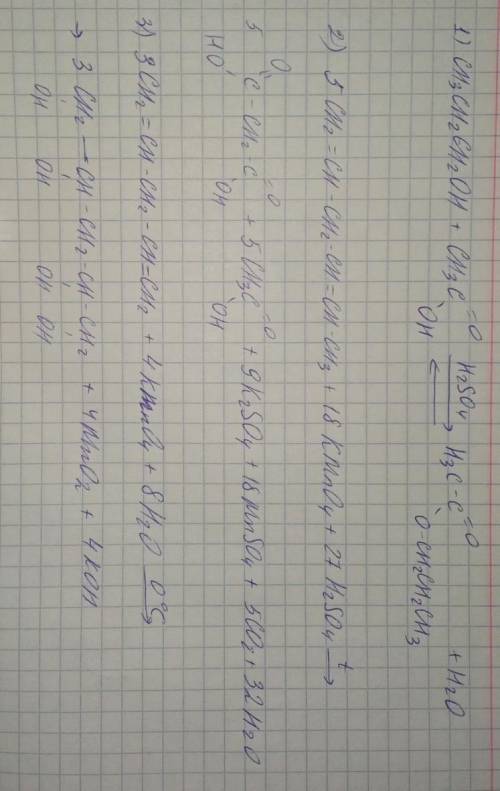 1) CH3CH2CH2OH + CH3C=O OH H2SO4 ⇄ H3C-C=O O-CH2CH2CH3 + H2O
2) 5 CH2=CH-CH2-CH=CH-CH3 + 18 KMnO4 + 27 H2SO4 t→
5 O=C HO -CH2-C=O OH + 5 CH3C=O OH + 9K2SO4 + 18MnSO4 + 5CO2 + 32H2O
3) 3CH2=CH-CH2-CH=CH2 + 4KMnO4 + 8H2O 0°C→
→ 3 CH2-CH-CH2-CH-CH2 + 4MnO2 + 4KOH
OH OH OH OH